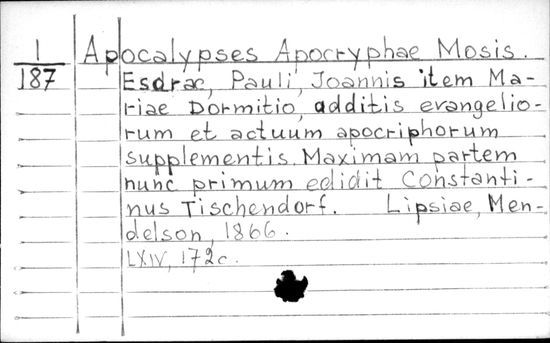 1
187
Apocalypses Apocryphae Mosis.
Esdrae, Pauli, Joannis item Ma-
riae Dormitio, additis evangelio-
rum et actuum apocriphorum
supplementis. Maximam partem
nunc primum edidit Constanti-
nus Tischendorf. Lipsiae, Men-
delson, 1866.
LXIV, 172 c.